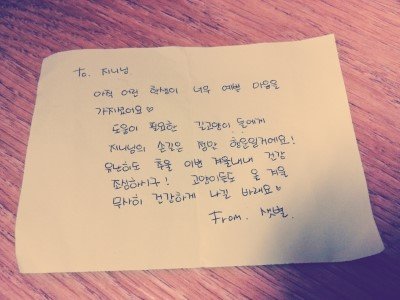 To. 지나님
아직 어린 학생이 너무 예쁜 마음을
가지셨어요♡
도움이 필요한 길고양이들에게
지나님의 손길은 정말 행운일거예요!
유난히도 추울 이번 겨울내내 건강
조심하시구! 고양이들도 올 겨울
무사히 건강하게 나길 바래요♡
From. 샛별